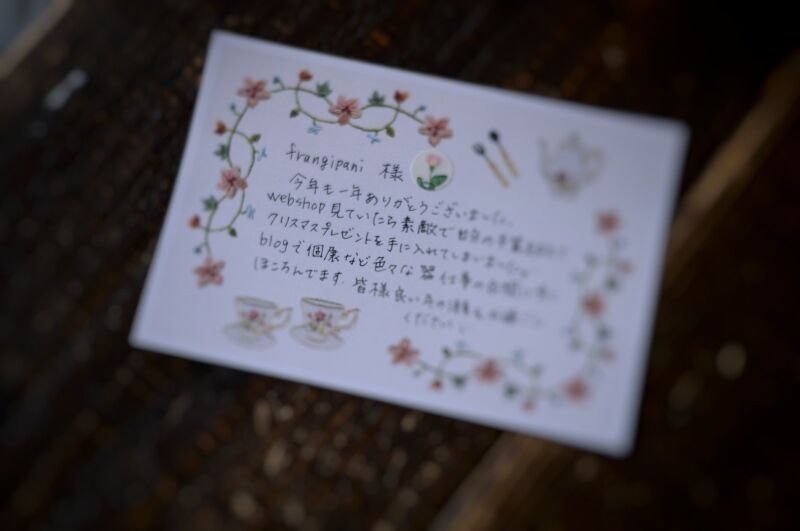 frangipani 様
今年も一年ありがとうございました。
webshop見ていたら素敵で自分の
クリスマスプレゼントを手に入れてしまいました。
blogで個展など色々な
ほころんでます. 皆様良い年の
ください